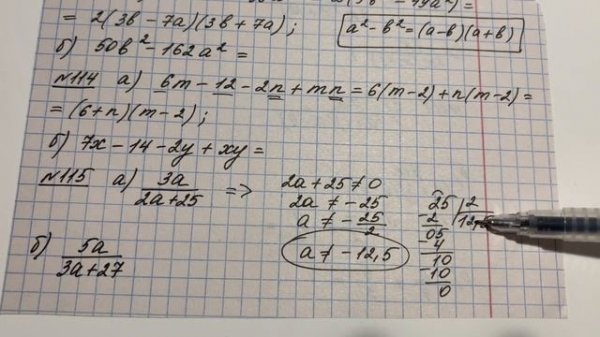 = 2(3b-7a)(3b+7a);
a²-b²=(a-b)(a+b)
б) 50b²-162a²=
№114 а) 6m-12-2n+mn=6(m-2)+n(m-2)=
=(6+n)(m-2);
б) 7x-14-2y+xy=
№115 а) 3a/(2a+25) =>
2a+25≠0
2a≠-25
a≠-25/2
a≠-12,5
25 | 2
-2
05
4
10
-10
0
б) 5a/(3a+27)